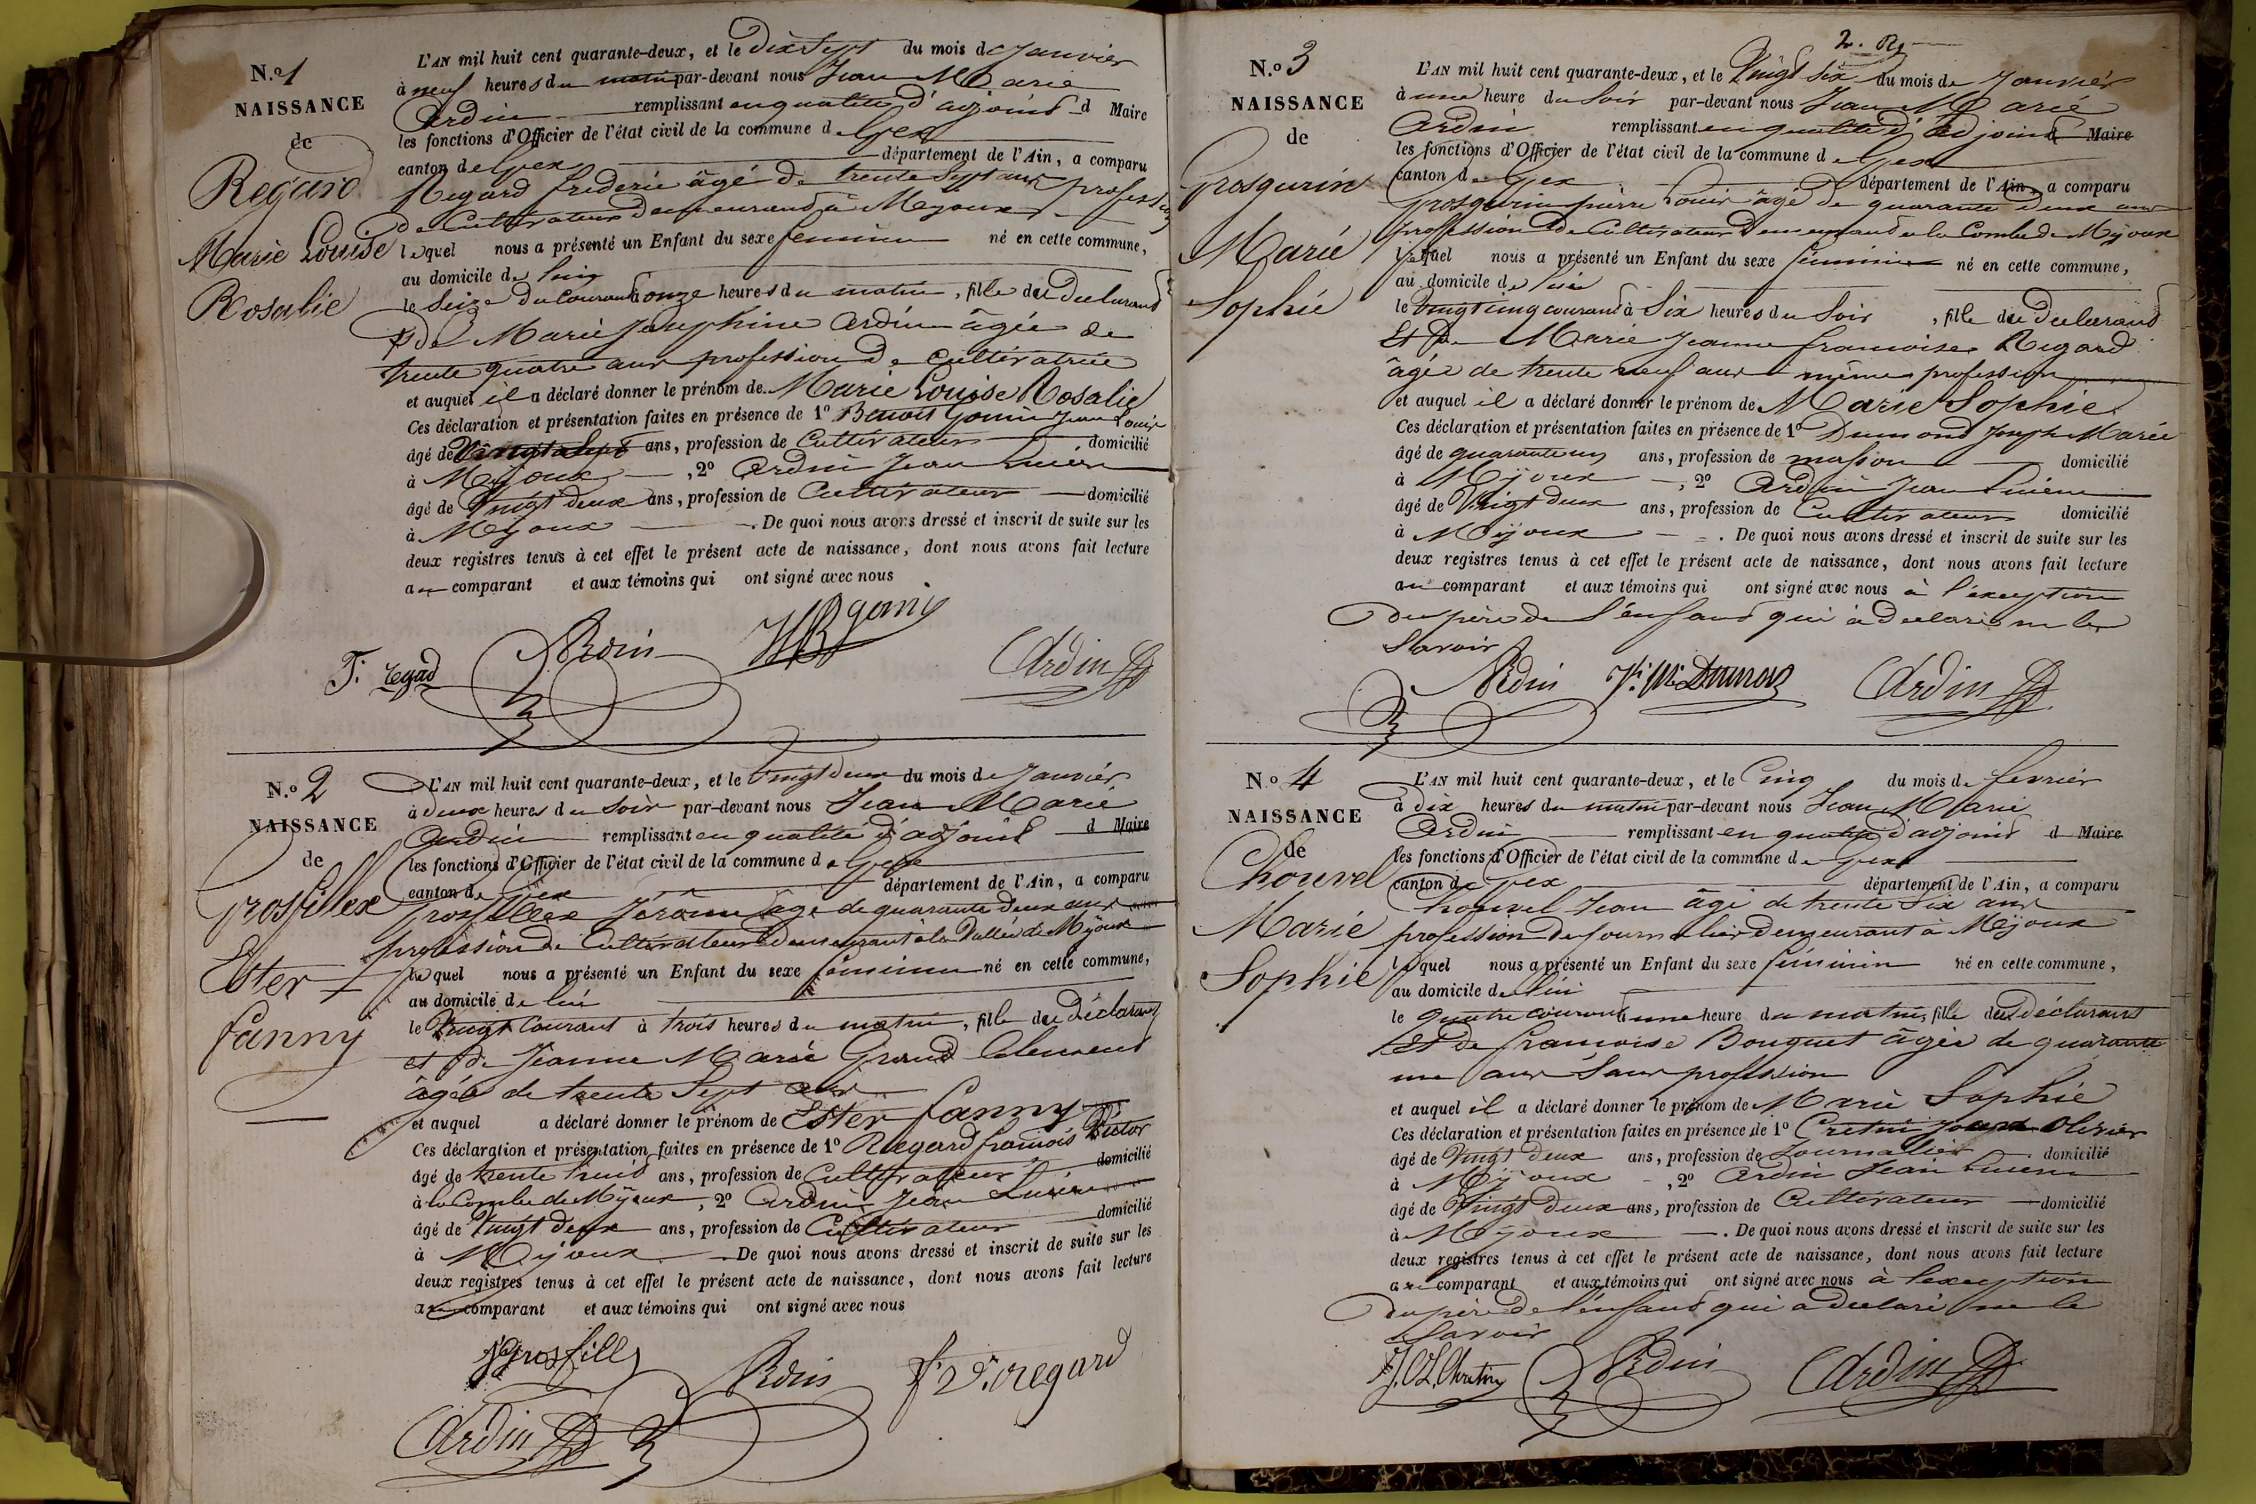 N.o 1
NAISSANCE
de
Regard
Marie Louise
Rosalie
L'AN mil huit cent quarante-deux, et le Dix Sept du mois de Janvier
à neuf heures du matin par-devant nous Jean Marie
Ardin remplissant en qualité d'adjoint d Maire
les fonctions d'Officier de l'état civil de la commune de Gex
canton de Gex département de l'Ain, a comparu
Regard frederic âgé de trente Sept ans profession
de Cultivateur Demeurand à Mijoux
lequel nous a présenté un Enfant du sexe feminin né en cette commune,
au domicile de luy
le Seize du Courand à onze heures du matin, fille du Declarand
& de Marie Josephine Ardin âgée de
trente quatre ans profession de cultivatrice
et auquel il a déclaré donner le prénom de Marie Louise Rosalie
Ces déclaration et présentation faites en présence de 1º Benoit Gonin Jean Louis
âgé de Vingt Sept ans, profession de Cultivateur domicilié
à Mijoux, 2º Ardin Jean Lucien
âgé de Vingt deux ans, profession de Cultivateur domicilié
à Mijoux. De quoi nous avons dressé et inscrit de suite sur les
deux registres tenus à cet effet le présent acte de naissance, dont nous avons fait lecture
au comparant et aux témoins qui ont signé avec nous
F. regad Ardin Ardin
N.o 2
NAISSANCE
de
Grosfillex
Ester
fanny
L'AN mil huit cent quarante-deux, et le Vingt deux du mois de Janvier
à deux heures du Soir par-devant nous Jean Marie
Ardin remplissant en qualité d'adjoint d Maire
les fonctions d'Officier de l'état civil de la commune de Gex
canton de Gex département de l'Ain, a comparu
Grosfillex Jérôme âgé de quarante deux ans
profession de Cultivateur demeurant à la Vallée de Mijoux
lequel nous a présenté un Enfant du sexe féminin né en cette commune,
au domicile de lui
le Vingt Courant à trois heures du matin, fille du Déclarant
et de Jeanne Marie Grand Clement
âgée de trente Sept ans
et auquel a déclaré donner le prénom de Ester fanny
Ces déclaration et présentation faites en présence de 1º Regard francois Victor
âgé de trente huit ans, profession de Cultivateur domicilié
à la Combe de Mijoux, 2º Ardin Jean Lucien
âgé de Vingt deux ans, profession de Cultivateur domicilié
à Mijoux De quoi nous avons dressé et inscrit de suite sur les
deux registres tenus à cet effet le présent acte de naissance, dont nous avons fait lecture
au comparant et aux témoins qui ont signé avec nous
Ardin F. Vr. regard
Ardin
N.o 3
NAISSANCE
de
Grosgurin
Marie
Sophie
L'AN mil huit cent quarante-deux, et le Vingt Six du mois de Janvier
à une heure du Soir par-devant nous Jean Marie
Ardin remplissant en qualité d'adjoint d Maire
les fonctions d'Officier de l'état civil de la commune de Gex
canton de Gex département de l'Ain, a comparu
Grosgurin pierre Louis âgé de quarante deux ans
profession de Cultivateur Demeurand à la Combe de Mijoux
lequel nous a présenté un Enfant du sexe féminin né en cette commune,
au domicile de lui
le Vingt cinq courand à Six heures du Soir, fille du Declarand
Et de Marie Jeanne francoise Regard
âgée de trente neuf ans même profession
et auquel il a déclaré donner le prénom de Marie Sophie
Ces déclaration et présentation faites en présence de 1º Dumond Joseph Marie
âgé de quarante un ans, profession de masson domicilié
à Mijoux, 2º Ardin Jean Lucien
âgé de Vingt deux ans, profession de Cultivateur domicilié
à Mijoux. De quoi nous avons dressé et inscrit de suite sur les
deux registres tenus à cet effet le présent acte de naissance, dont nous avons fait lecture
au comparant et aux témoins qui ont signé avec nous à l'exception
du père de l'enfand qui à declaré ne le
Savoir
Ardin Ardin
N.o 4
NAISSANCE
de
Chouvel
Marie
Sophie
L'AN mil huit cent quarante-deux, et le Cinq du mois de fevrier
à dix heures du matin par-devant nous Jean Marie
Ardin remplissant en qualité d'adjoint d Maire
les fonctions d'Officier de l'état civil de la commune de Gex
canton de Gex département de l'Ain, a comparu
Chouvel Jean âgé de trente Six ans
profession de Journalier demeurant à Mijoux
lequel nous a présenté un Enfant du sexe féminin né en cette commune,
au domicile de lui
le quatre courant à une heure du matin, fille du déclarant
Et de francoise Bouquet âgée de quarante
un ans Sans profession
et auquel il a déclaré donner le prénom de Marie Sophie
Ces déclaration et présentation faites en présence de 1º Cretin Joseph Olivier
âgé de Vingt deux ans, profession de Journallier domicilié
à Mijoux, 2º Ardin Jean Lucien
âgé de Vingt deux ans, profession de Cultivateur domicilié
à Mijoux. De quoi nous avons dressé et inscrit de suite sur les
deux registres tenus à cet effet le présent acte de naissance, dont nous avons fait lecture
au comparant et aux témoins qui ont signé avec nous à l'exception
du père de l'enfand qui a declaré ne le
Savoir
Ardin Ardin